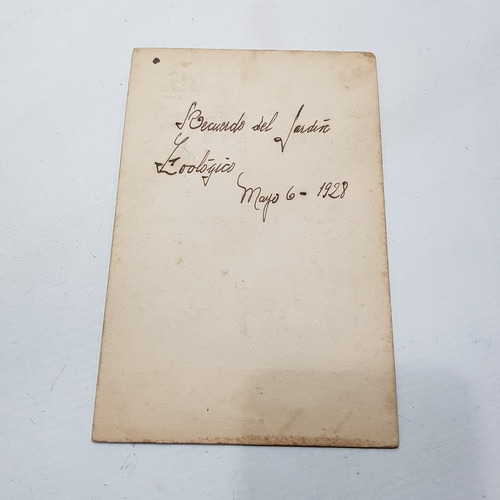 Recuerdo del Jardin
Zoológico
Mayo 6 - 1928